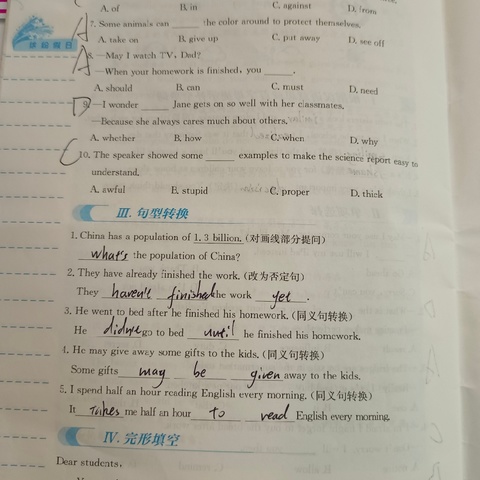 A. of B. in C. against D. from
A 7. Some animals can ______ the color around to protect themselves.
A. take on B. give up C. put away D. see off
A 8. —May I watch TV, Dad?
—When your homework is finished, you ______.
A. should B. can C. must D. need
D 9. —I wonder ______ Jane gets on so well with her classmates.
—Because she always cares much about others.
A. whether B. how C. when D. why
C 10. The speaker showed some ______ examples to make the science report easy to
understand.
A. awful B. stupid C. proper D. thick
Ⅲ. 句型转换
1. China has a population of 1.3 billion. (对画线部分提问)
what's the population of China?
2. They have already finished the work. (改为否定句)
They haven't finished the work yet.
3. He went to bed after he finished his homework. (同义句转换)
He didn't go to bed until he finished his homework.
4. He may give away some gifts to the kids. (同义句转换)
Some gifts may be given away to the kids.
5. I spend half an hour reading English every morning. (同义句转换)
It takes me half an hour to read English every morning.
Ⅳ. 完形填空
Dear students,